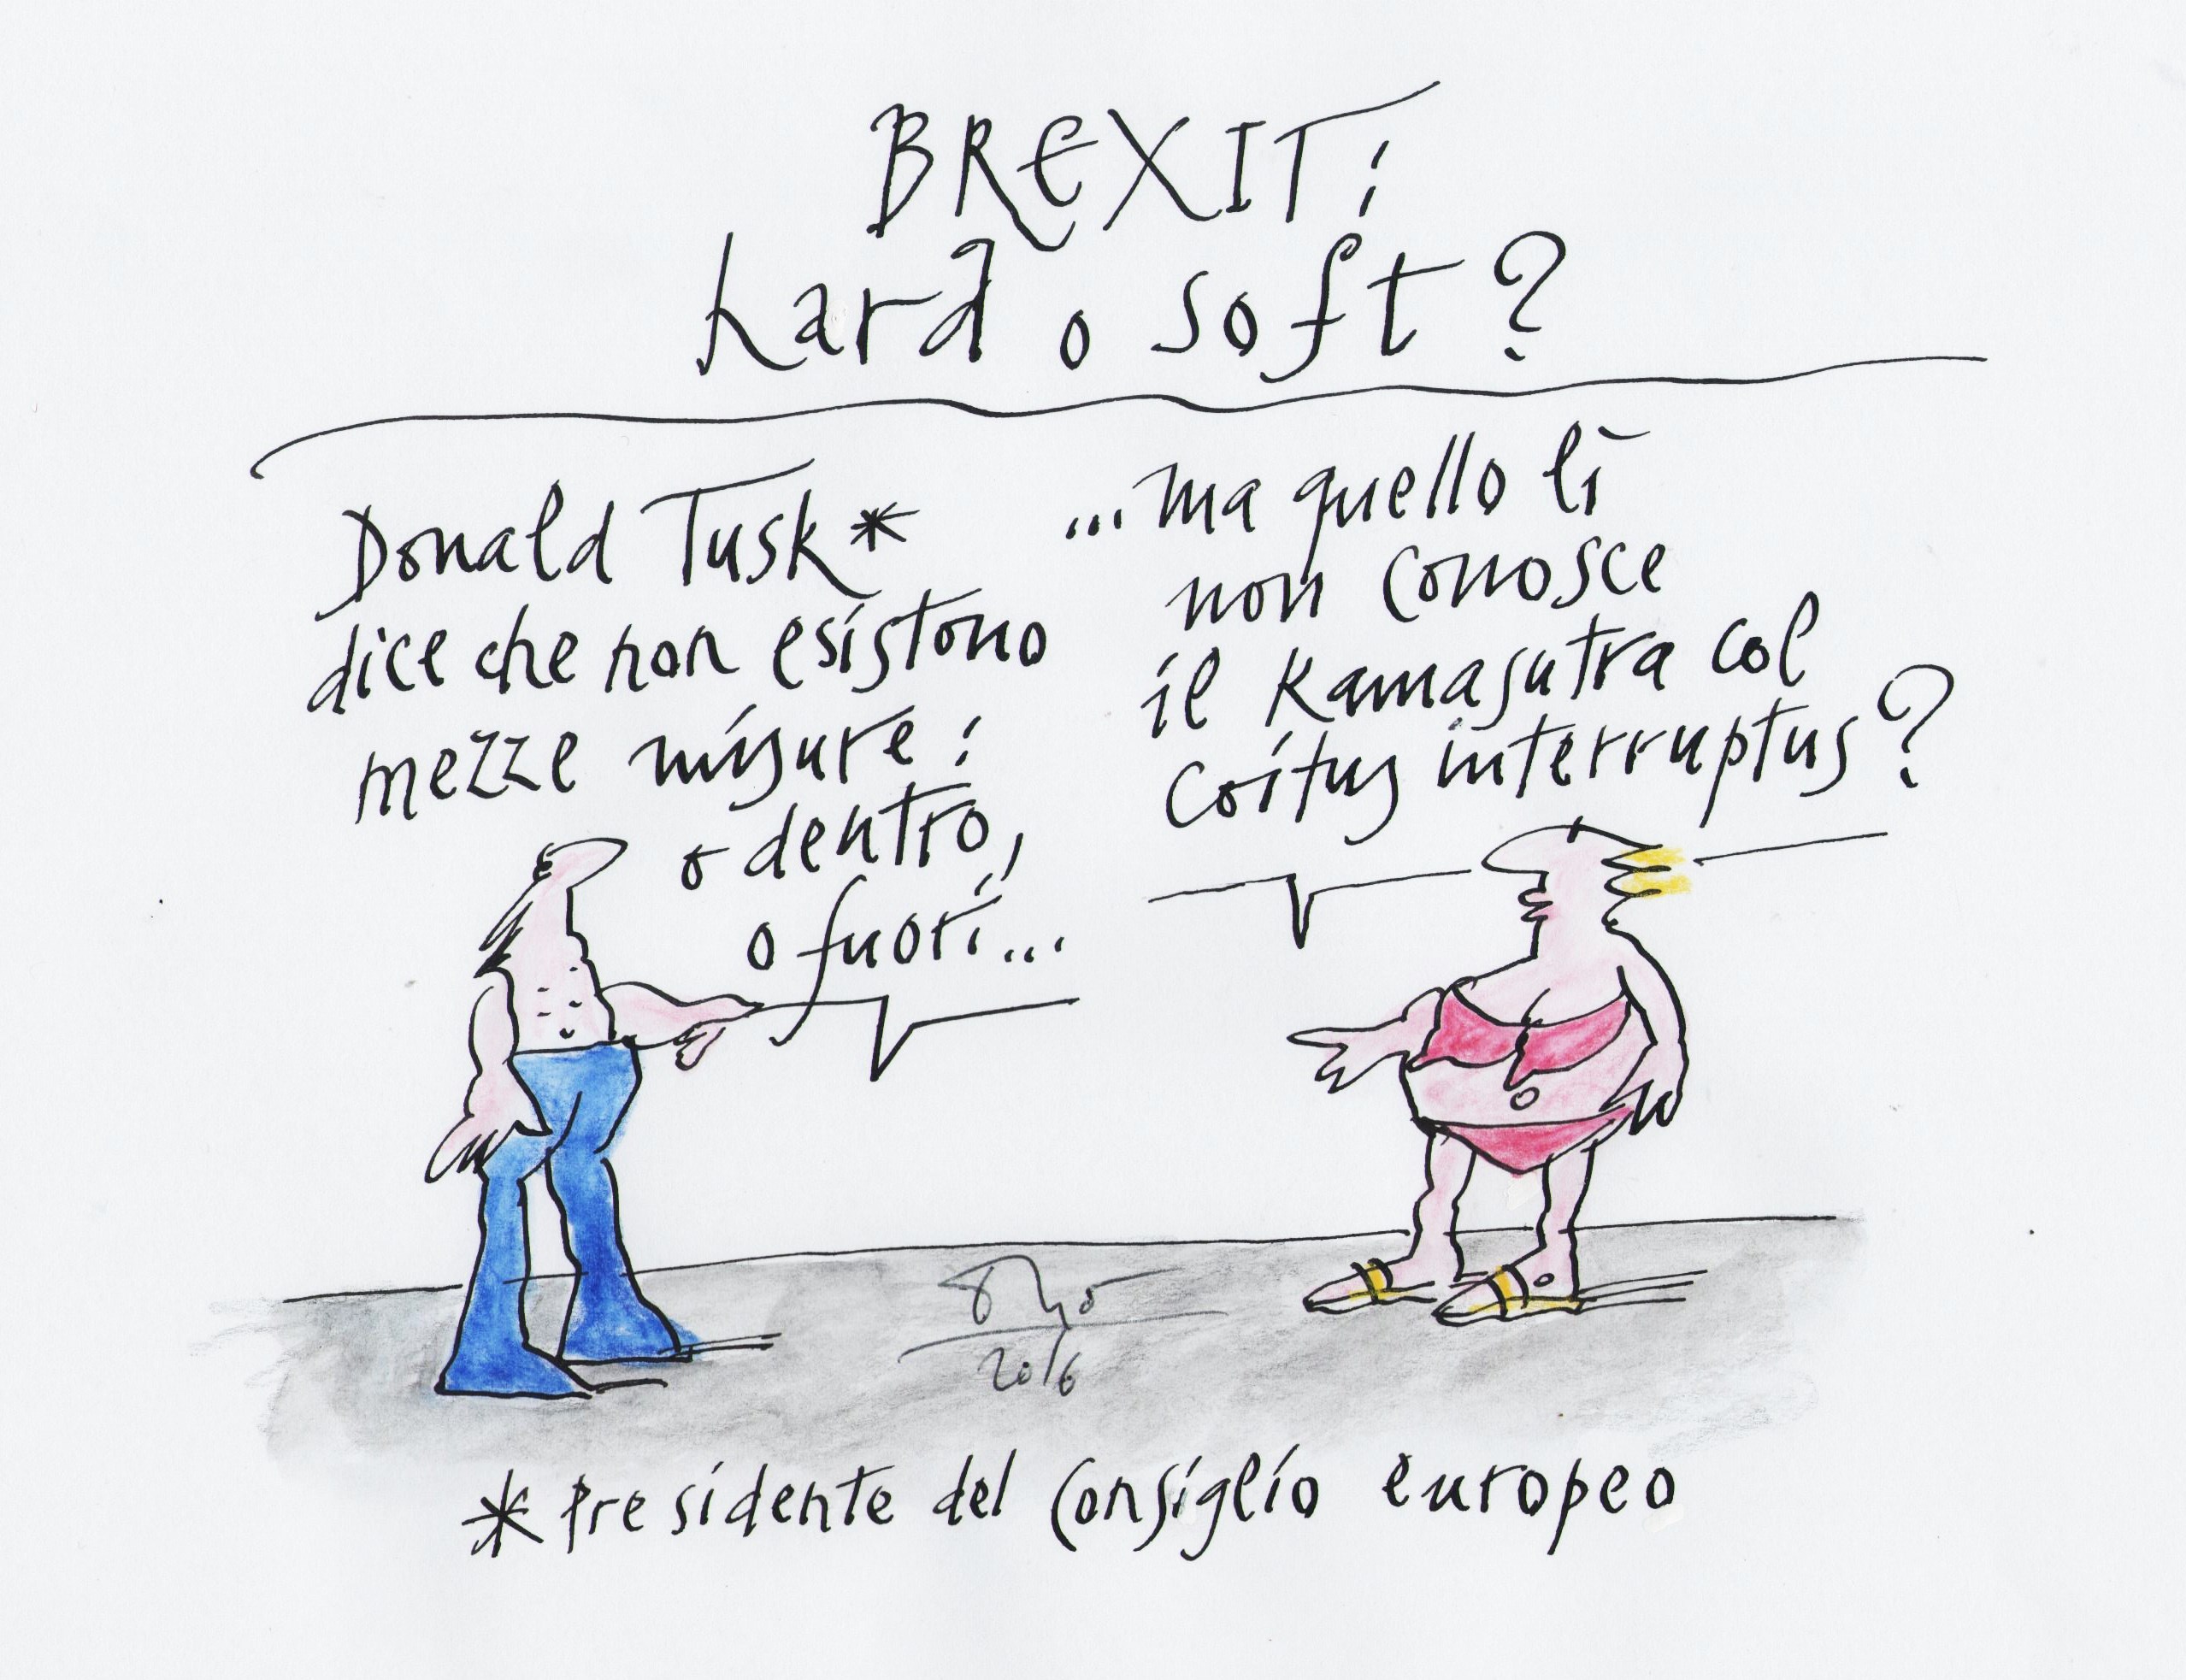 BREXIT:
hard o soft?
Donald Tusk*
dice che non esistono
mezze misure:
o dentro,
o fuori...
...ma quello lì
non conosce
il Kamasutra col
coitus interruptus?
2016
*presidente del Consiglio europeo